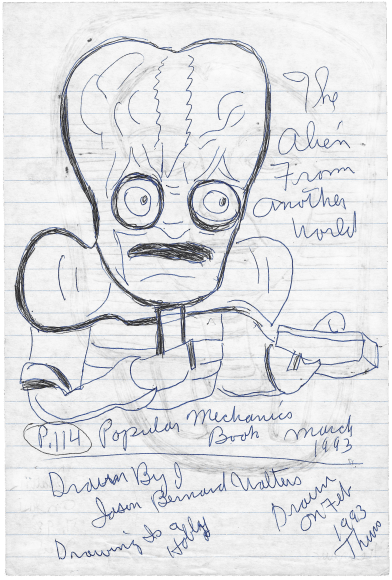 The
Alien
From
another
World
P.114 Popular Mechanics
Book March
1993
Drawn By I
Jason Bernard Walters
Drawing Is a
Hobby
Drawn
On Feb
1993
Thurs